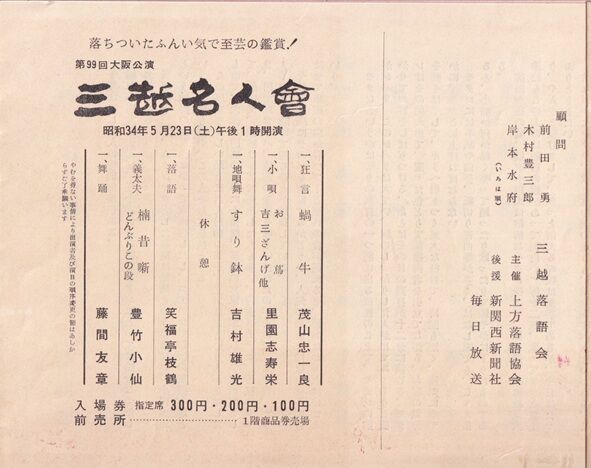 顧問
前田 勇
木村豊三郎
岸本水府
(いろは順)
三越落語会
主催 上方落語協会
後援 新関西新聞社
毎日放送
落ちついたふんい気で至芸の鑑賞!
第99回大阪公演
三越名人會
昭和34年5月23日(土)午後1時開演
一、狂言 蝸牛 茂山忠一良
一、小唄 お蔦 吉三ざんげ他 里園志寿栄
一、地唄舞 すり鉢 吉村雄光
休憩
一、落語 笑福亭枝鶴
一、義太夫 楠昔噺 どんぶりこの段 豊竹小仙
一、舞踊 藤間友章
やむを得ない事情により出演者及び演目の順序変更の節はあしか
らずご了承願います
入場券 指定席 300円・200円・100円
前売所 1階商品券売場